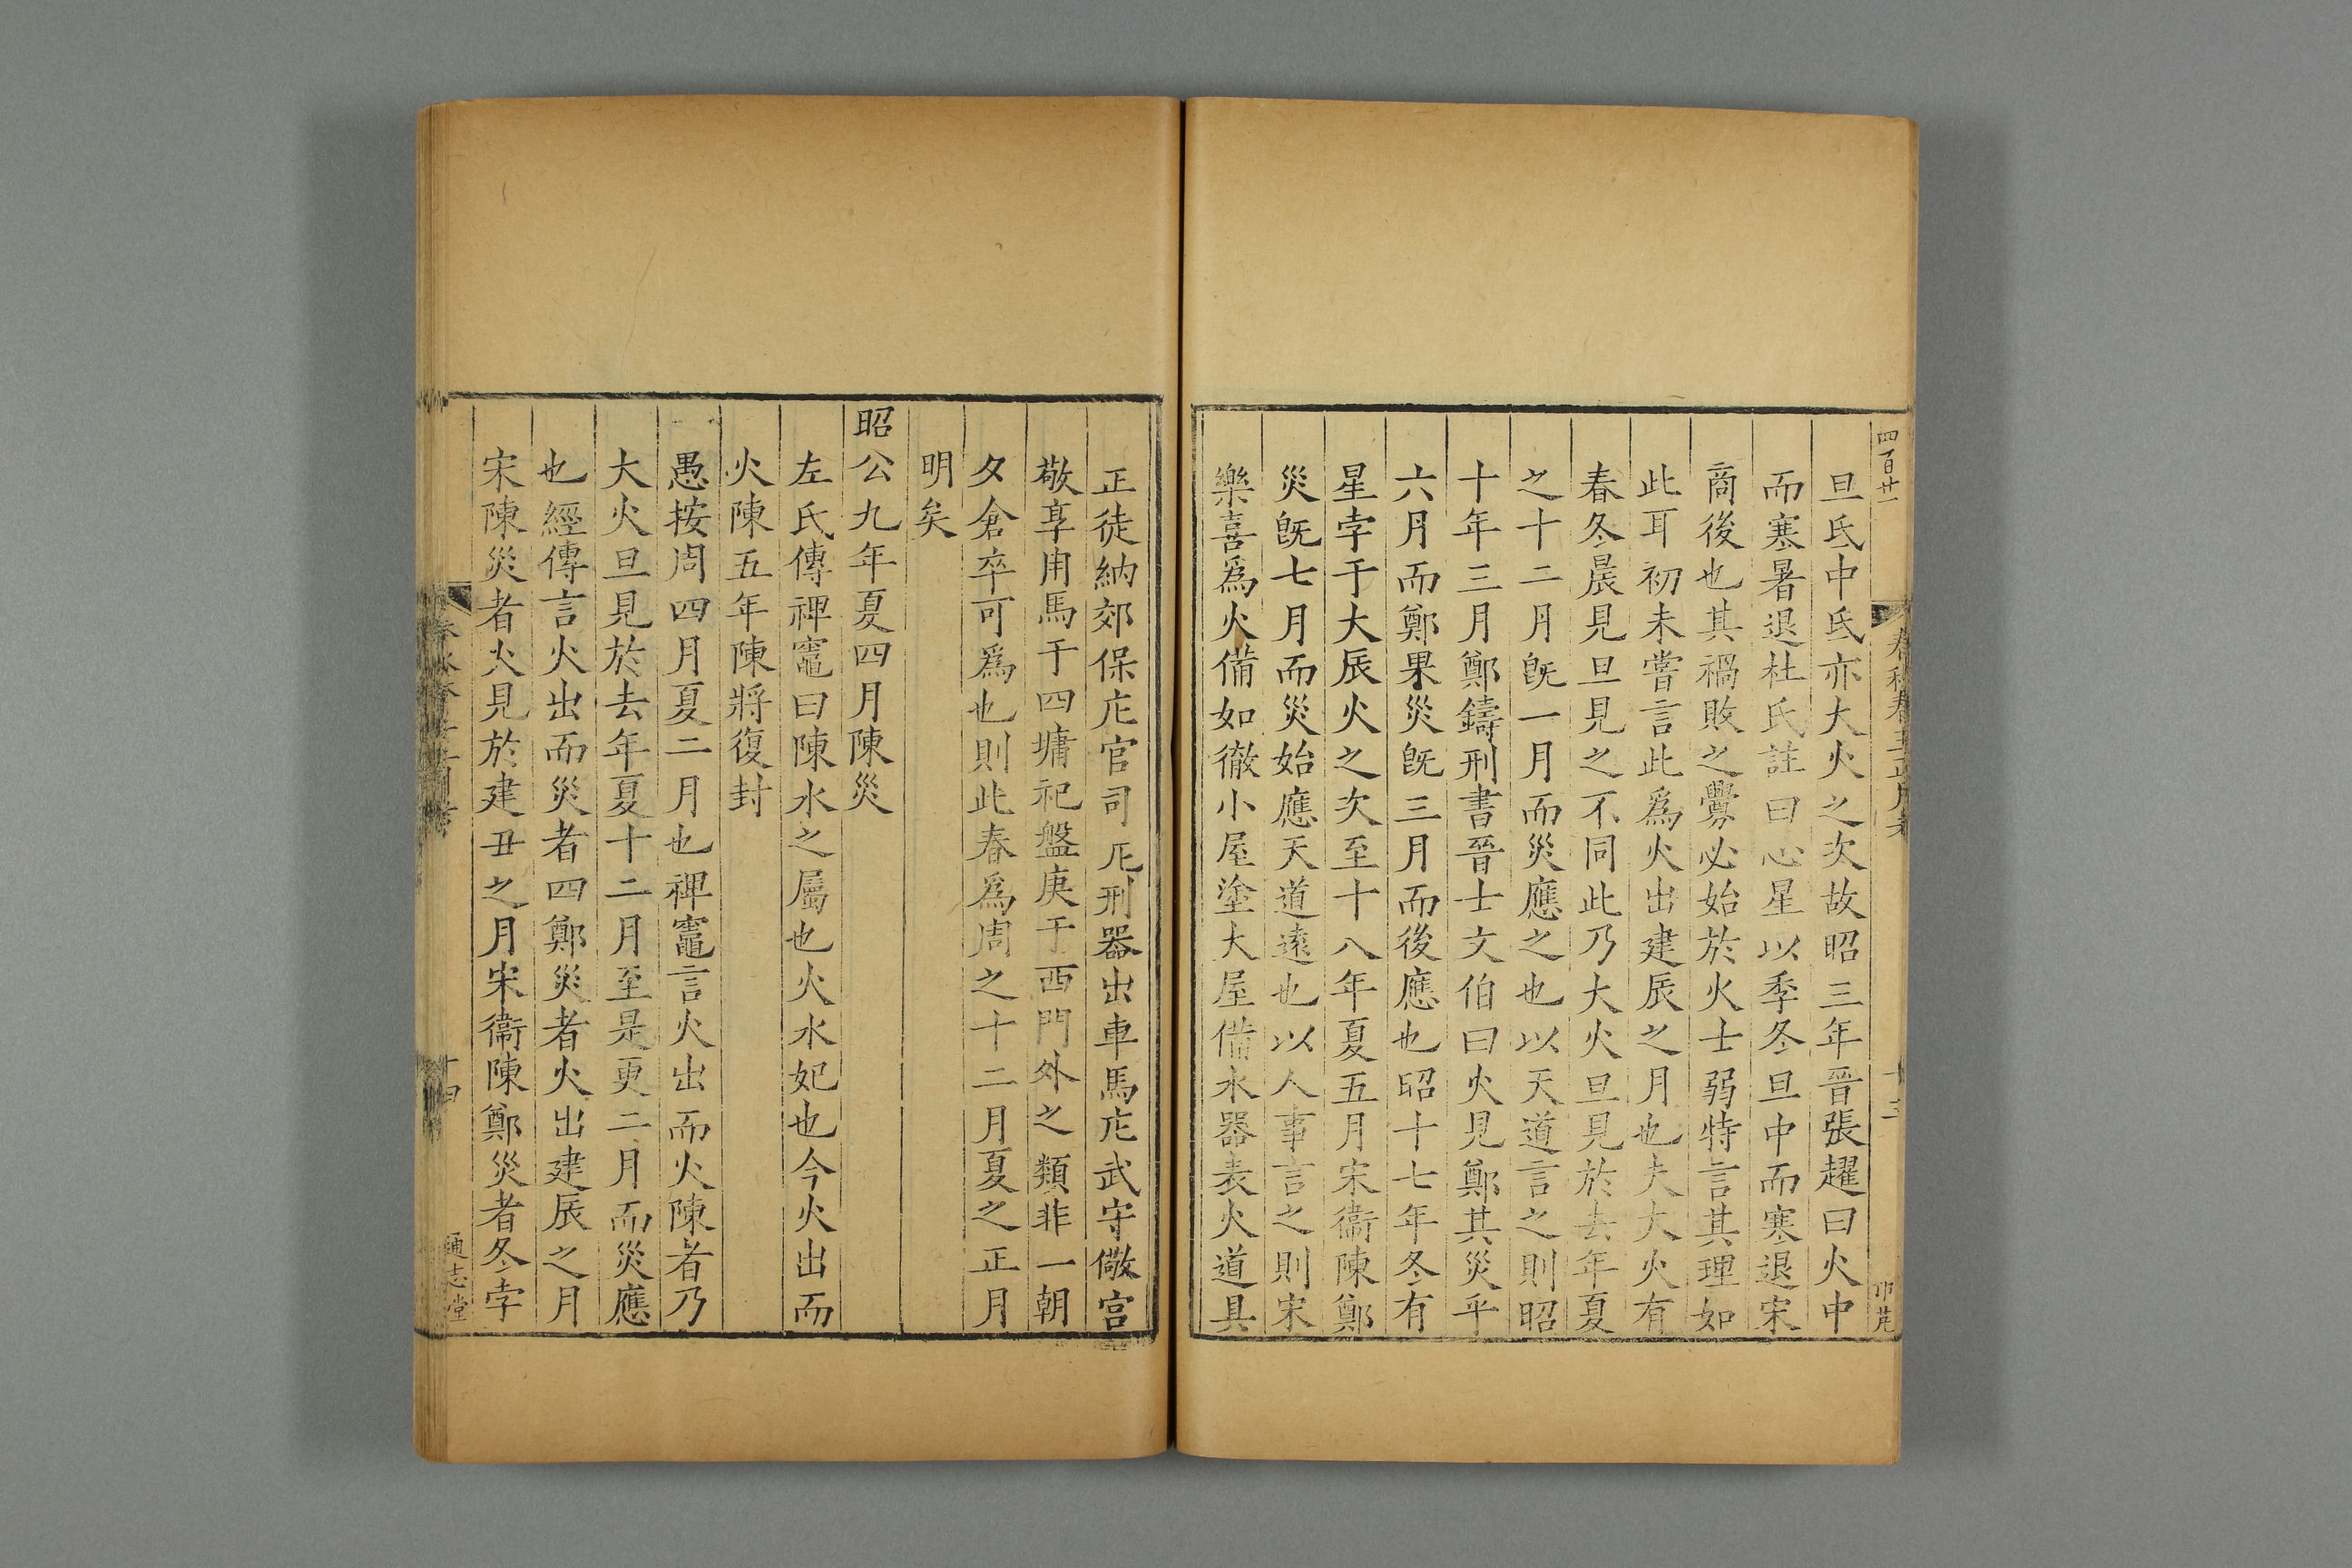 四百廿一
旦氐中氐亦大火之次故昭三年晉張趯曰火中
而寒暑退杜氏註曰心星以季冬旦中而寒退宋
商後也其禍敗之釁必始於火士弱特言其理如
此耳初未嘗言此爲火出建辰之月也夫大火有
春冬晨見旦見之不同此乃大火旦見於去年夏
之十二月旣一月而災應之也以天道言之則昭
十年三月鄭鑄刑書晉士文伯曰火見鄭其災乎
六月而鄭果災旣三月而後應也昭十七年冬有
星孛于大辰火之次至十八年夏五月宋衞陳鄭
災旣七月而災始應天道遠也以人事言之則宋
樂喜爲火備如徹小屋塗大屋備水器表火道具
正徒納郊保庀官司庀刑器出車馬庀武守儆宮
敬享用馬于四墉祀盤庚于西門外之類非一朝
夕倉卒可爲也則此春爲周之十二月夏之正月
明矣
昭公九年夏四月陳災
左氏傳裨竈曰陳水之屬也火水妃也今火出而
火陳五年陳將復封
愚按周四月夏二月也裨竈言火出而火陳者乃
大火旦見於去年夏十二月至是更二月而災應
也經傳言火出而災者四鄭災者火出建辰之月
宋陳災者火見於建丑之月宋衞陳鄭災者冬孛
十四
通志堂